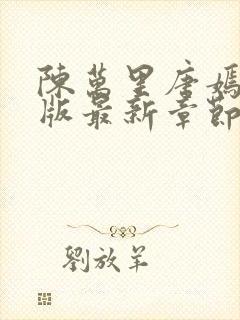 陳萬里唐嫣
版最新章節
劉放羊